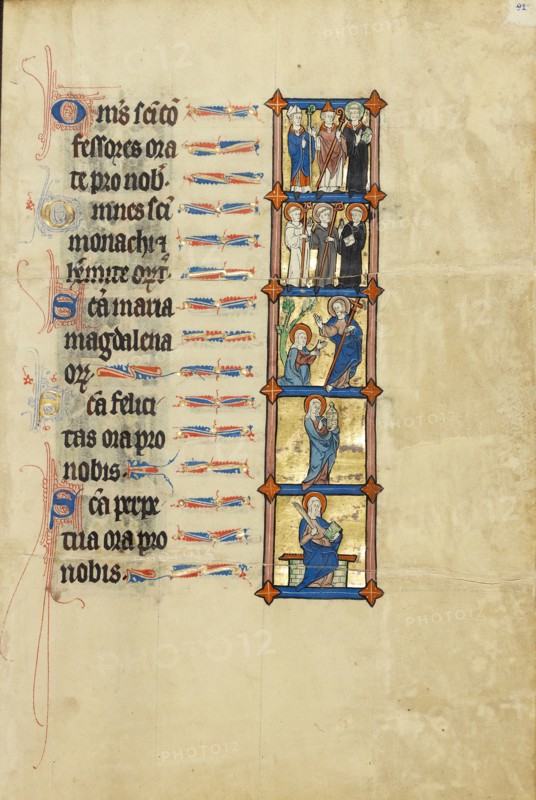 Om̄s sc̄i cō
fessores ora
te pro nob̄.
Omnes sc̄i
monachi ⁊
h̄mite or̄.
Sc̄a maria
magdalena
or̄
Sc̄a felici
tas ora pro
nobis.
Sc̄a perpe
tua ora pro
nobis.
PHOTO12